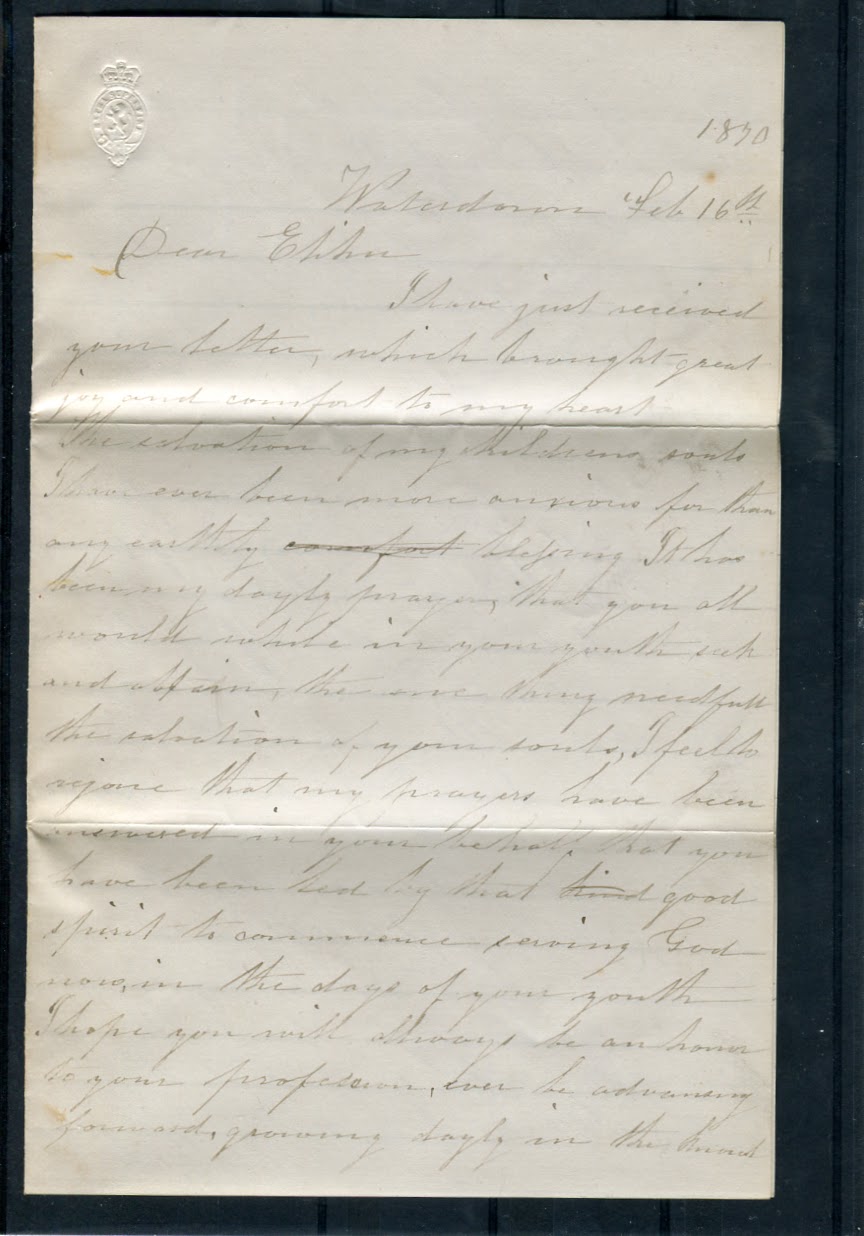 1870
Waterdown Feb 16th
Dear Elihu
I have just received
your letter, which brought great
joy and comfort to my heart
The salvation of my childrens souls
I have ever been more anxious for than
any earthly comfort blessing It has
been my dayly prayer, that you all
would while in your youth seek
and obtain, the one thing needfull
the salvation of your souls, I feel to
rejoice that my prayers have been
answered in your behalf, that you
have been led by that kind good
spirit to commence serving God
now, in the days of your youth
I hope you will always be an honor
to your profession, ever be advancing
forward, growing dayly in the knowl